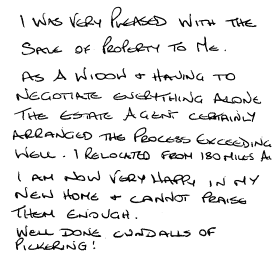 I WAS VERY PLEASED WITH THE
SALE OF PROPERTY TO ME.
AS A WIDOW & HAVING TO
NEGOTIATE EVERYTHING ALONE
THE ESTATE AGENT CERTAINLY
ARRANGED THE PROCESS EXCEEDING
WELL. I RELOCATED FROM 180 MILES A
I AM NOW VERY HAPPY IN MY
NEW HOME & CANNOT PRAISE
THEM ENOUGH.
WELL DONE CUNDALLS OF
PICKERING!